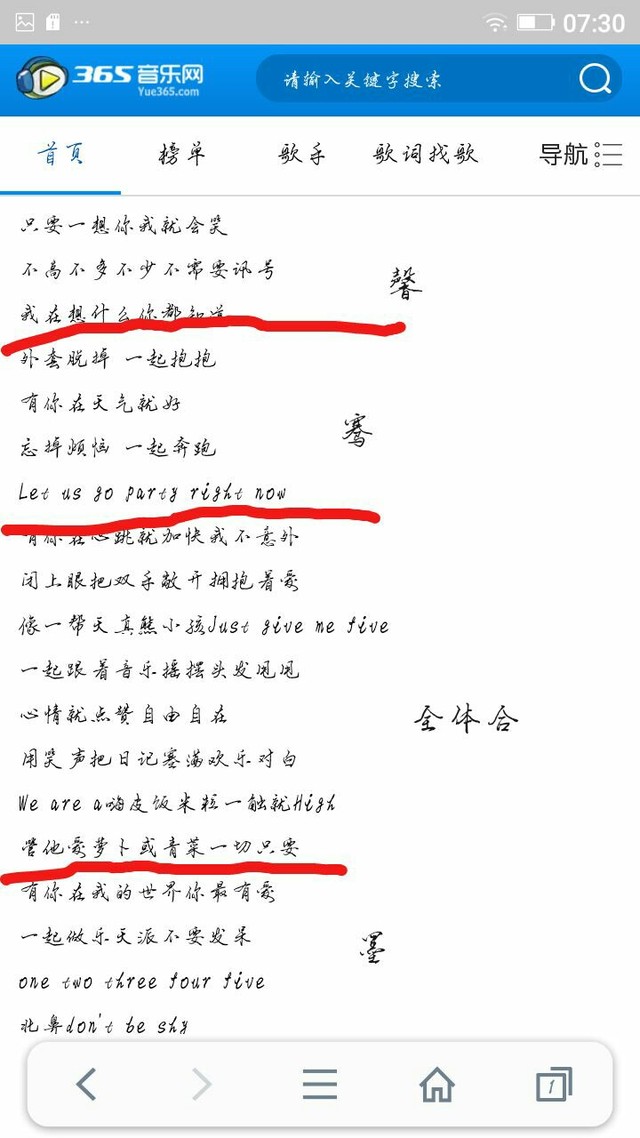 07:30
365音乐网
Yue365.com
请输入关键字搜索
首页 榜单 歌手 歌词找歌 导航
只要一想你我就会笑
不高不多不少不需要讯号
馨
我在想什么你都知道
外套脱掉 一起抱抱
有你在天气就好
骞
忘掉烦恼 一起奔跑
Let us go party right now
有你在心跳就加快我不意外
闭上眼把双手敞开拥抱着爱
像一帮天真熊小孩Just give me five
一起跟着音乐摇摆头发甩甩
心情就点赞自由自在
全体合
用笑声把日记塞满欢乐对白
We are a嗨皮饭米粒一触就High
管他爱萝卜或青菜一切只要
有你在我的世界你最有爱
一起做乐天派不要发呆
墨
one two three four five
北鼻don't be shy
1